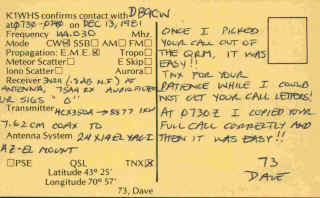 K1WHS confirms contact with DB9CW
at 0730-0740 on DEC 13, 1981
Frequency 144.030 Mhz.
Mode CW SSB AM FM
Propagation: E.M.E. Tropo
Meteor Scatter E Skip
Iono Scatter Aurora
Receiver
ANTENNA, 75 Hz RX AUDIO FILTER
UR SIGS "O"
Transmitter → 8877 1KW
7.62 CM COAX TO
Antenna System 24 X 14 EL YAGI
AZ-EL MOUNT
PSE QSL TNX
Latitude 43° 25'
Longitude 70° 57'
73, Dave
ONCE I PICKED
YOUR CALL OUT OF
THE QRM, IT WAS
EASY!!
TNX FOR YOUR
PATIENCE WHILE I COULD
NOT GET YOUR CALL LETTERS!
AT 0730Z I COPIED YOUR
FULL CALL CORRECTLY AND
THEN IT WAS EASY!!
73
DAVE